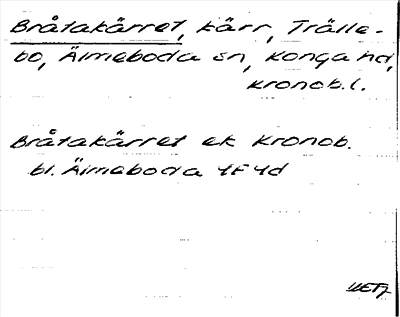 Bråtakärret, kärr, Trälle-
bo, Älmeboda sn, Konga hd,
Kronob.l.
Bråtakärret ek Kronob.
bl. Älmeboda 4F4d